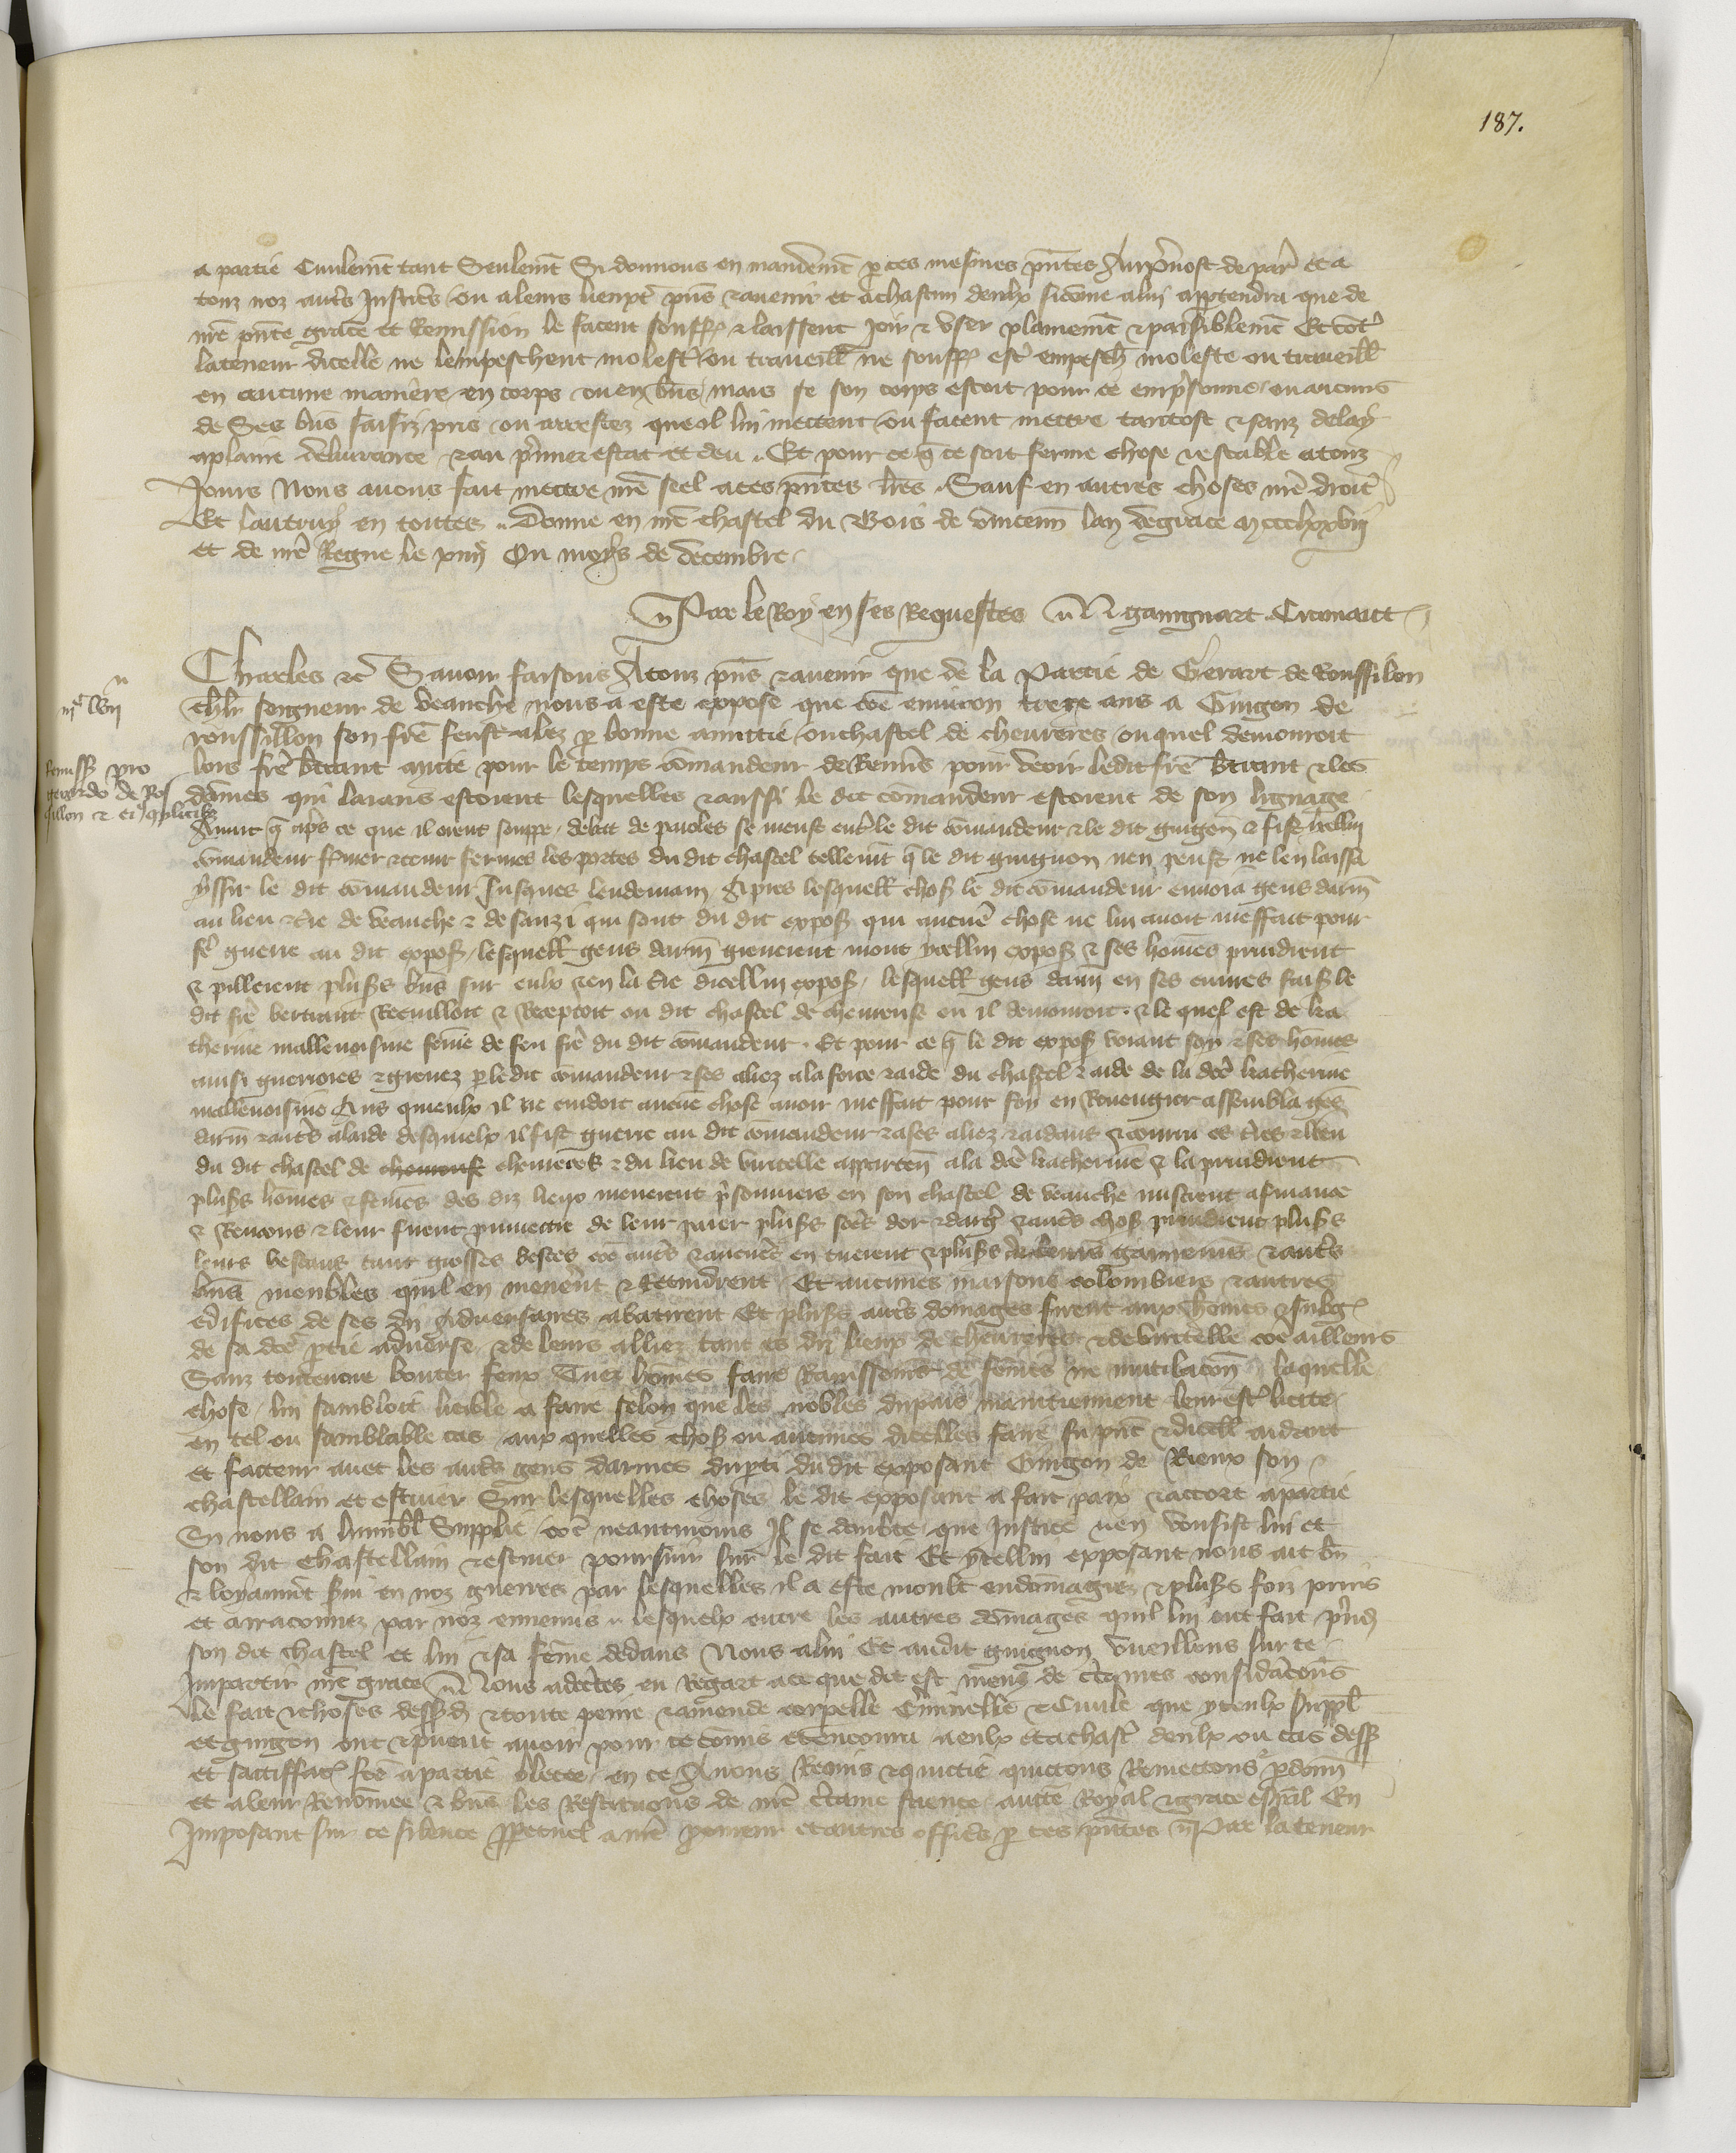 187.
a partie Civilemt tant Seulemt Si donnons en mandemt p ces mesmes pntes Au pvost de par et a
touz noz autrs Justicrs ou a leurs lieuxt pns & avenir et a chascun deulx sicome a lui apptendra que de
nre pnte grace et Remission le facent souffr & laissent joir & user plainemt & paisiblemt Et cont
la teneur dicelle ne lempeschent molest ou travaill ne souffr est empesch moleste ou travaill
en aucune maniere en corps ou en biens mais se son corps estoit pour ce emprisonne ou aucuns
de Ses bns saisiz pris ou arrestez que ol lui mettent ou facent mettre tantost & sanz delay
a plaine delivrance & au primier estat et deu. Et pour ce q ce soit ferme chose & estable a touz
Jours Nous avons fait mettre nre seel a ces pntes lres Sauf en autres choses nre droit
Et lautruy en toutes. Donne en nre chastel du Bois de Vincenn lan de grace m ccclxxvij
et de nre Regne le xiiij Ou moys de decembre.
Par le Roy en ses Requestes N gaingnart Cramaut
Charles &c Savoir faisons A touz pns & avenir que de la Partie de Gerart de Roussillon
chlr seigneur de veauche nous a este expose que coe environ treze ans a Guigon de
roussillon son fre feust alez p bonne amitie ou chastel de cheureres ouquel demouroit
lors fre btrant pour le temps comandeur de Benns pour veoir ledit fre btrant & les
dames qui laians estoient lesquelles & aussi le dit comandeur estoient de son lignage
Avint q aprs ce que il orent souppe debat de paroles se meust entr le dit comandeur & le dit guigon & fist icellui
comandeur fermer & tenir fermes les portes du dit chastel tellemt q le dit guignon nen peust ne len laissa
yssir le dit comandeur Jusques lendemain Apres lesquell chos le dit comandeur envoia gens darm
au lieu & tre de veauche & de qui sont du dit expos qui aucune chose ne lui avoit meffait pour
fe guerre au dit expos lesquell gens darm greverent mont ycellui expos & ses homes prindrent
& pillerent pluss bns sur eulx & en la tre dicellui expos lesquell gens darm en ses euvres fais le
dit fre bertrant Recuilloit & Receptoit ou dit chastel de ou il demouroit & le quel est de ka
therine mallevoisine feme de feu fre du dit comandeur. Et pour ce q le dit expos voiant soy & ses homes
ainsi guerroies & grevez p le dit comandeur & ses aliez a la force & aide du chastel & aide de la dce katherine
mallevoisine Aus quieulx il ne cuidoit aucune chose avoir meffait pour soy en Revengier assembla ges
darm & autrs a laide desquielx il fist guerre au dit comandeur & a ses aliez & aidans & couru es tres & lieu
du dit chastel de & du lieu de viricelle apparten a la dce katherine & la prindrent
pluss homes & femes des diz lieux menerent prisonniers en son chastel de veauche mistrent a finance
& Rencons & leur firent promettre de leur paier pluss somes dor & darg & autrs chos prindrent pluss
leurs bestaus tant grosses bestes coe autrs & aucunes en tuerent & pluss garnemens & autrs
bns meubles quil en menerent & Retindrent Et aucunes maisons colombiers & autres
edifices de ses diz Adversaires abatirent Et pluss autrs domages firent aux homes & subg
de sa dce ptie adverse & de leurs alliez tant es diz lieux de cheureres & de viricelle coe ailleurs
Sanz toutevoie bouter feux Tuez homes faire Ravissemt de femes ne mutilacon laquelle
chose lui sambloit licible a faire selon que les nobles du pais maintiennent leur est licitte
en tel ou samblable cas aux quelles chos ou aucunes dicelles faire fu pnt & dicell aidant
et facteur avec les autrs gens darmes du pti du dit exposant Guigon de Rieux son
chastellain et escuier Sur lesquelles choses le dit exposant a fait paix & accort a partie
Si nous a humbl Supplie coe neantmoins Il se doubte que Justice nen vousist lui et
son dit chastellain & escuier poursuir sur le dit fait Et ycellui exposant nous ait bn
& loyaumt srvi en noz guerres par lesquelles il a este moult endomagiez & pluss foiz prins
et arraconnez par noz ennemis lesquelx entre les autres domages quil lui ont fait prind
son dit chastel et lui & sa feme dedans Nous a lui Et audit guignon vueillons sur ce
Impartir nre grace Nous adecrtes eu Regart a ce que dit est meuz de crtaines consideracons
Le fait & choses dessd & toute peine & amende corpelle Criminelle & Civile que yceulx suppl
et guigon ont & puent avoir pour ce comis et encouru a eulx et a chasc deulx ou cas dess
et sattiffac fce a partie blecee en ce Avons Remis & quictie quictons Remettons & pdonn
et a leur Renomee & bns les Restituons de nre crtaine science auctte Royal & grace espal En
Imposant sur ce silence ppetuel a nre pcureur et autres offics p ces pntes Par la teneur
iijc lvij
Remiss pro
gerardo de Ros
sillon & ei complicibz